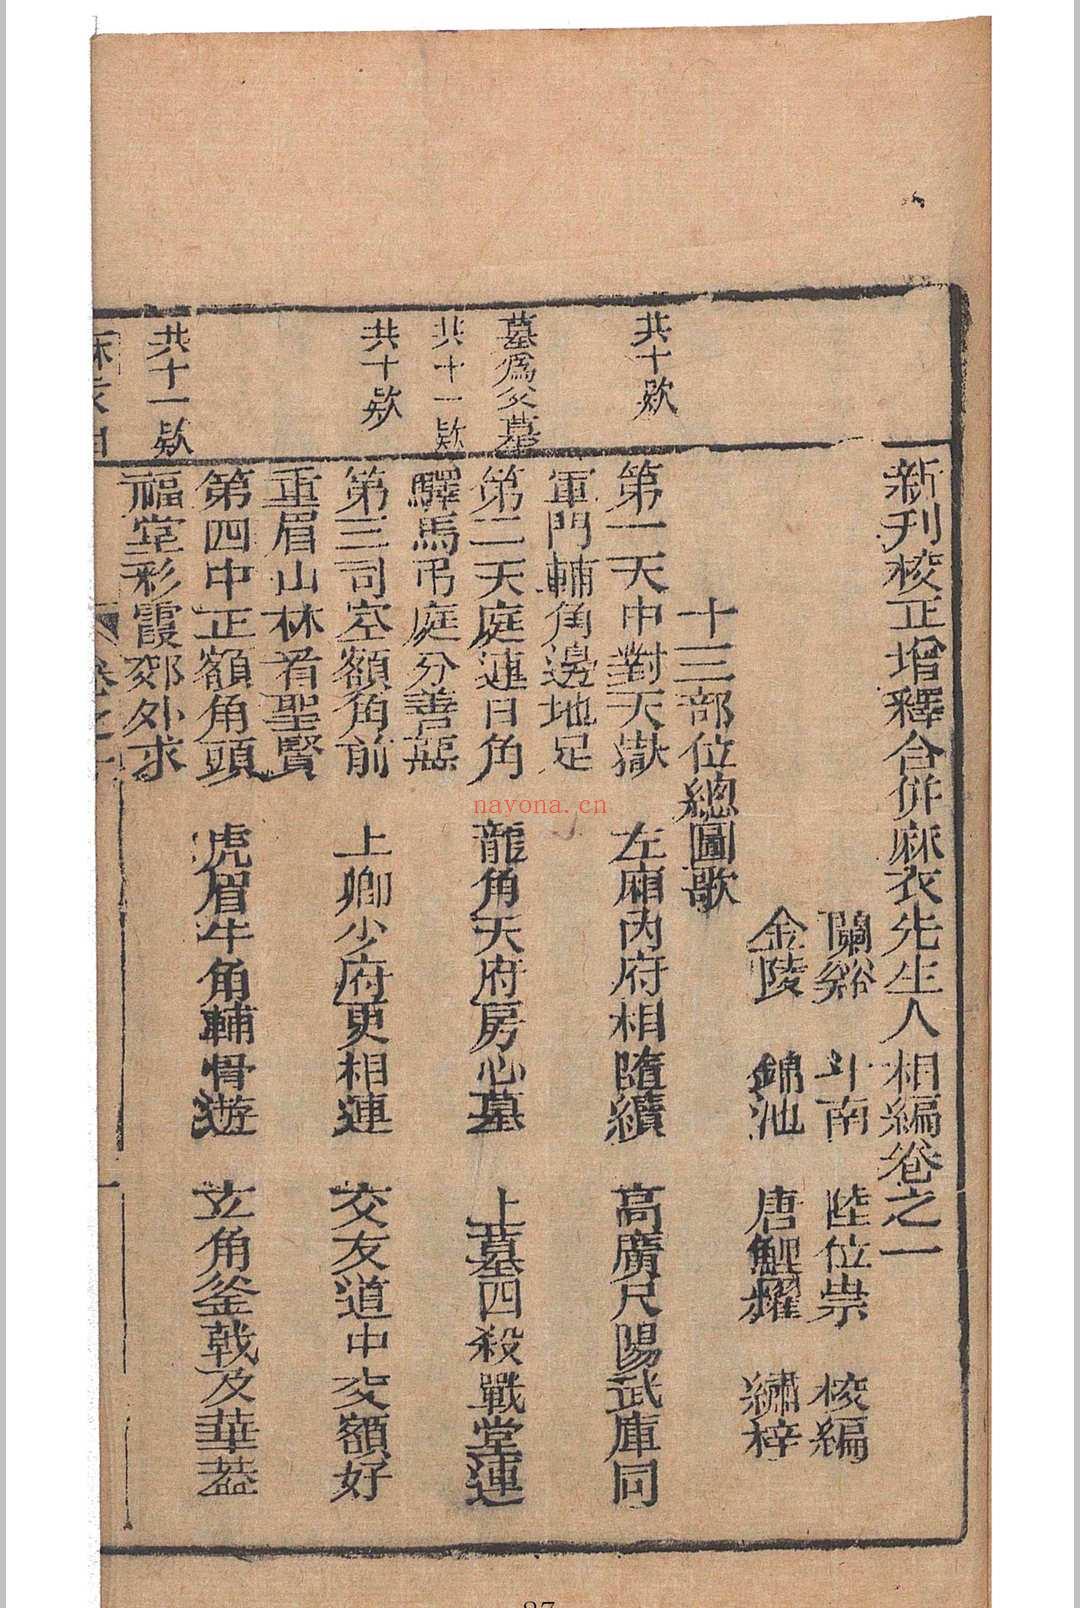 新刊校正增釋合併麻衣先生人相編卷之一
蘭谿 斗南 陸位崇 校編
金陵 錦池 唐鯉耀 繡梓
十三部位總圖歌
共十款
第一天中對天嶽 左廂內府相隨續 高廣尺陽武庫同
軍門輔角邊地足
墓為父墓
第二天庭連日角 龍角天府房心墓 上墓四殺戰堂連
共十一款
驛馬弔庭分善惡
共十款
第三司空額角前 上卿少府更相連 交友道中交額好
重眉山林看聖賢
第四中正額角頭 虎眉牛角輔骨遊 玄角釜戟及華蓋
共十一款
福堂彩霞郊外求
卷之一
一
navona.cn